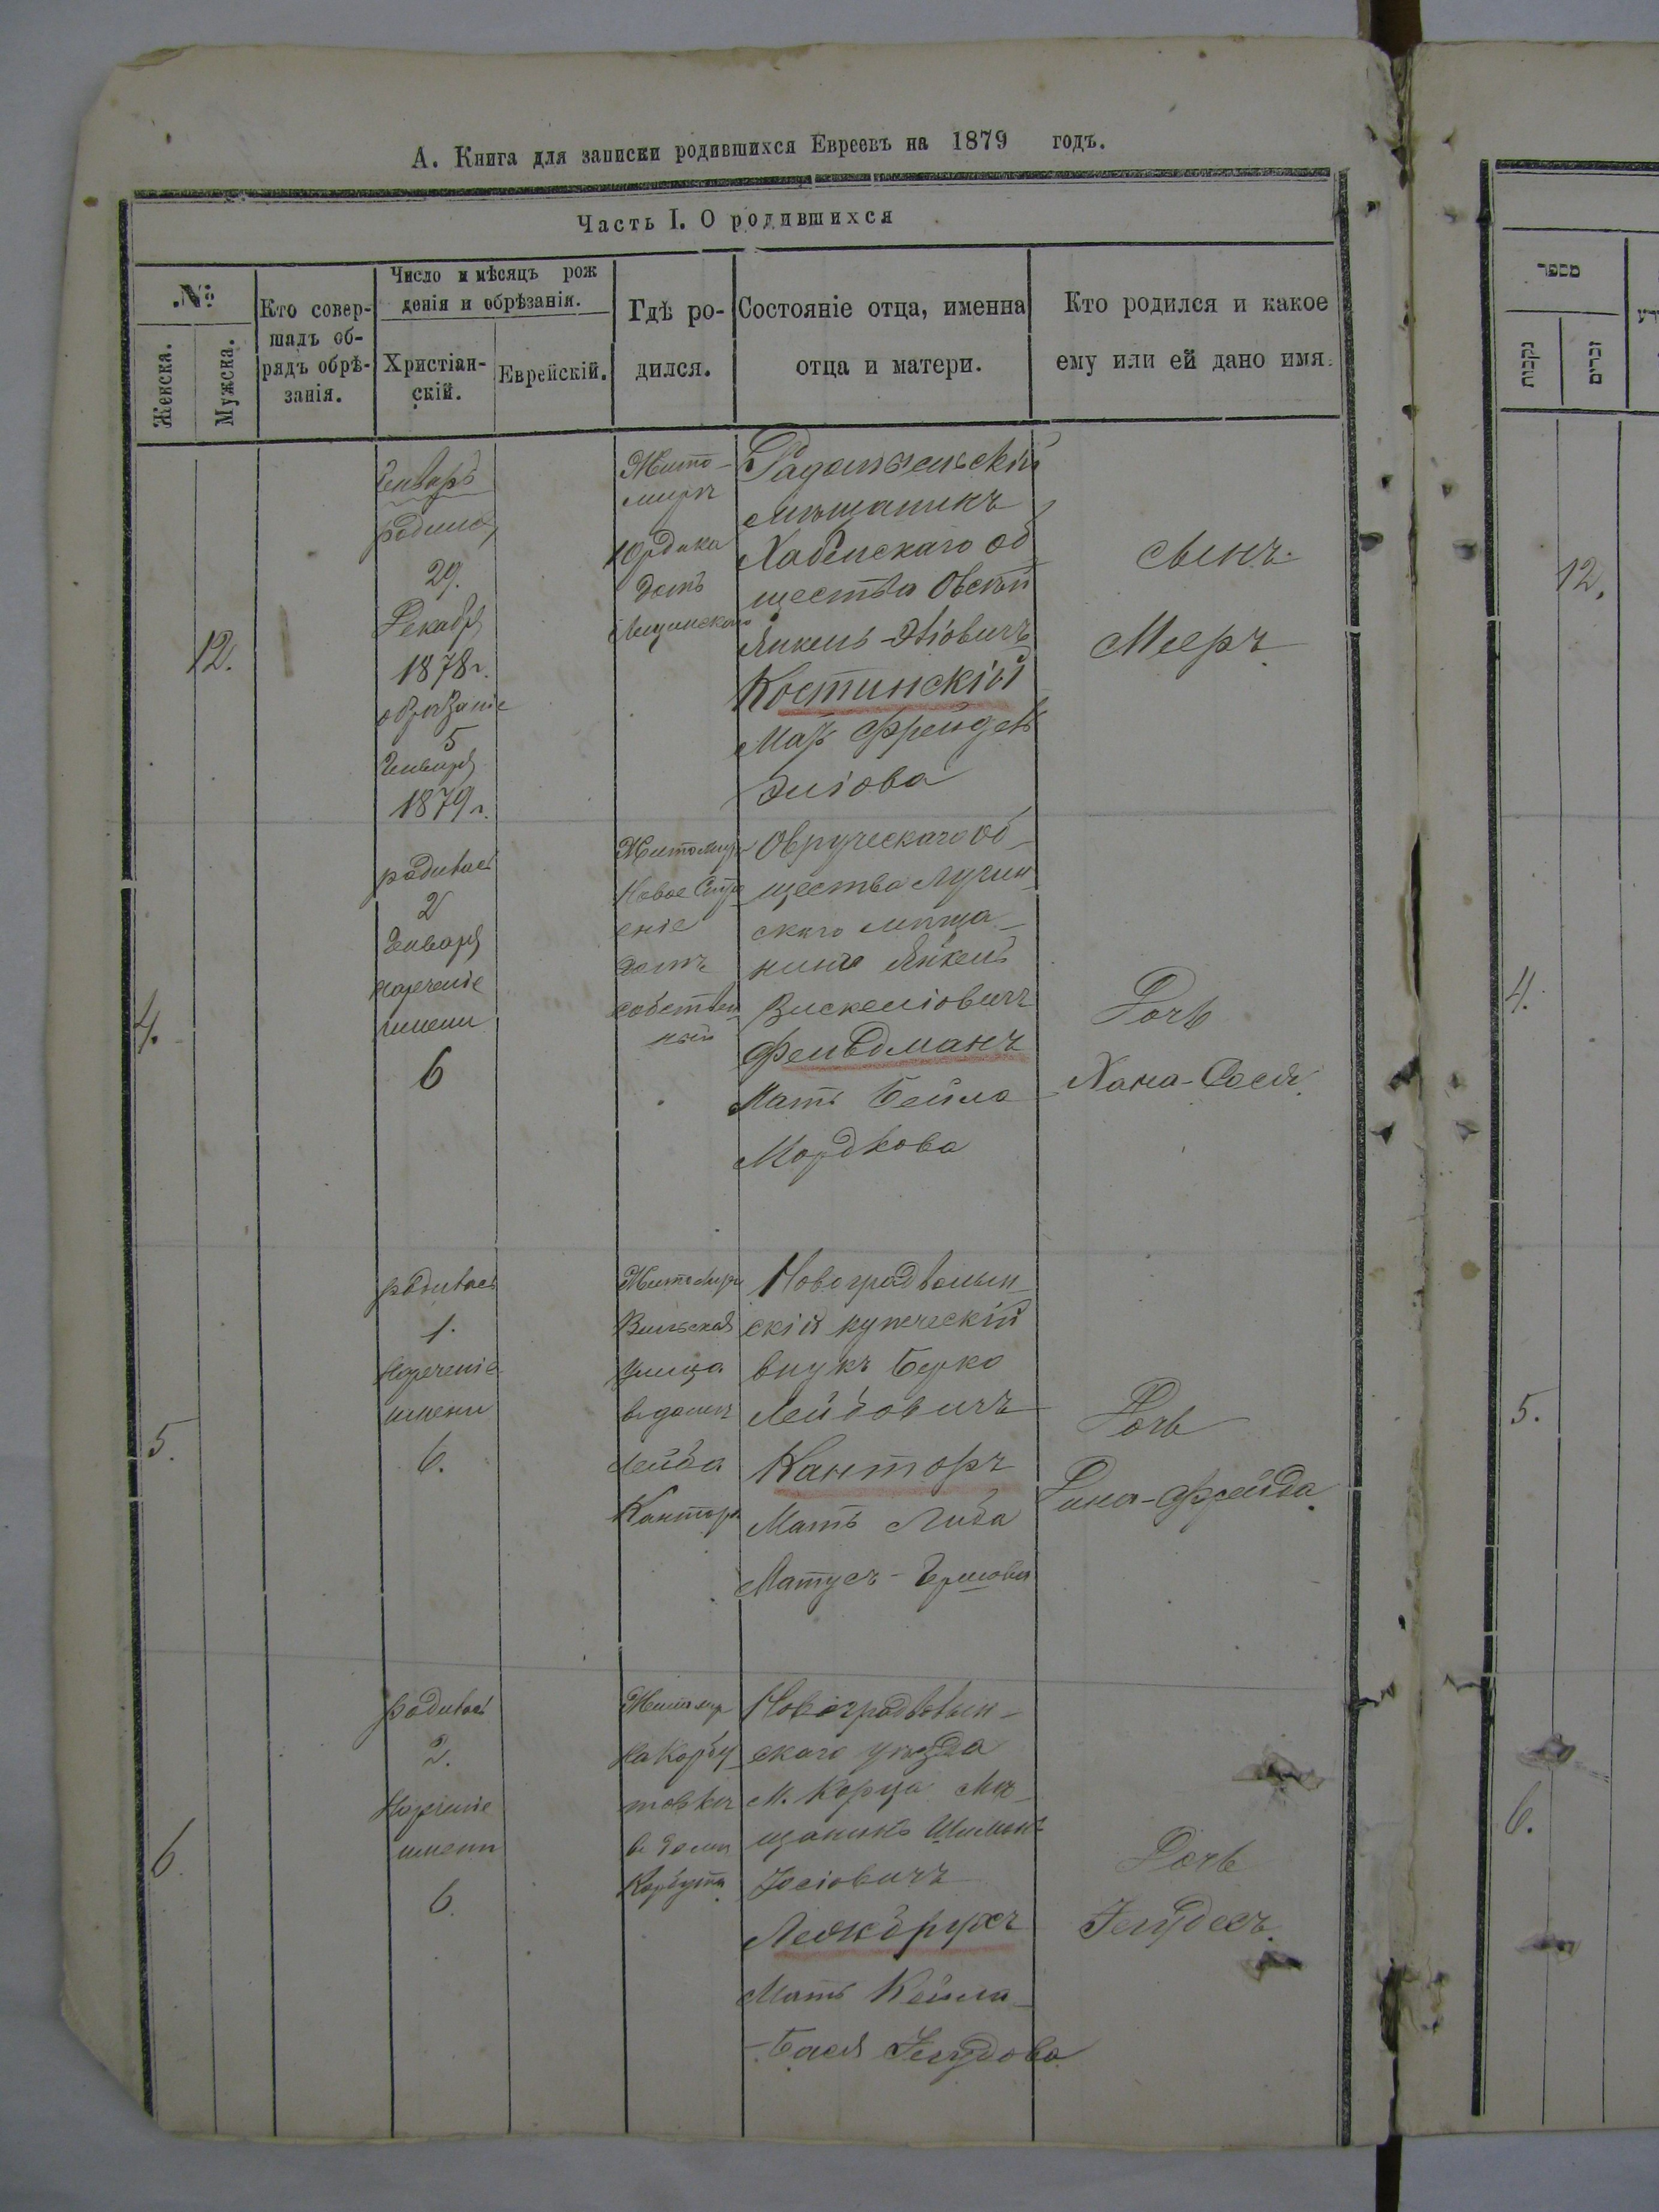 А. Книга для записки родившихся Евреевъ на 1879 годъ.
Часть I. О родившихся
№
Женска.
Мужска.
Кто совер-
шалъ об-
рядъ обрѣ-
занія.
Число и мѣсяцъ рож
денія и обрѣзанія.
Христіан-
скій.
Еврейскій.
Гдѣ ро-
дился.
Состояніе отца, именна
отца и матери.
Кто родился и какое
ему или ей дано имя.
12.
Январь
родился
29.
Декабря
1878 г.
обрѣзаніе
5
Января
1879 г.
Жито-
миръ
домъ
Радомысльскій
мѣщанинъ
Хабенскаго об
щества Овсѣй
Янкель-
Костинскій
Мать Фрейда
Эліова
сынъ
Мееръ
4.
родилась
2
Января
нареченіе
имени
6
Житомиръ
Новое Стро
еніе
домъ
собствен
ный
Овручскаго об-
щества Лугин
скаго мѣща-
нинъ Янкель
Фельдманъ
Мать Бейла
Мордкова
Дочь
Хана-Сося.
5.
родилась
1.
Нареченіе
имени
6.
Житомиръ
Вильская
улица
въ домѣ
Лейба
Кантора
Новоградволын-
скій купеческій
внукъ Берко
Лейбовичъ
Канторъ
Мать Либа
Матусъ-Гершова
Дочь
Дина-Фрейда.
6
родилась
2.
Нареченіе
имени
6.
Житомиръ
На Корбу
товкѣ
въ домѣ
Корбута
Новоградволын-
скаго уѣзда
М. Корца Мѣ-
щанинъ Шимонъ
Іосіовичъ
Мать Кейла-
-Бася Іегудова
Дочь
Іегудесъ.
מספר
נקבות
זכרים
12.
4.
5.
6.